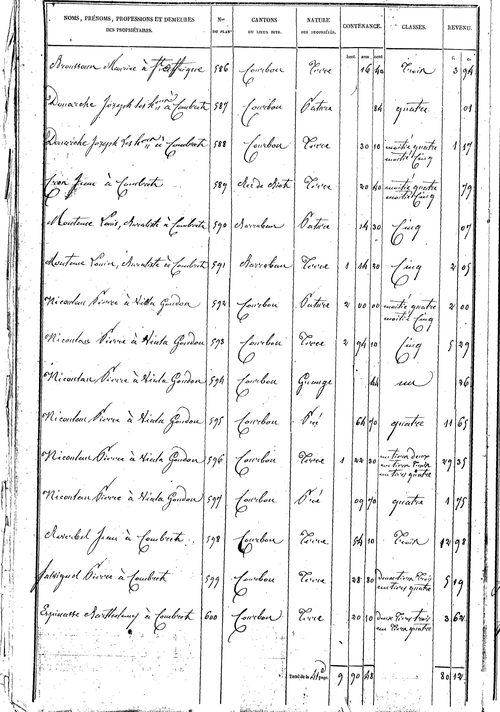 NOMS, PRÉNOMS, PROFESSIONS ET DEMEURES DES PROPRIÉTAIRES. Nos DU PLAN CANTONS OU LIEUX DITS. NATURE DES PROPRIÉTÉS. CONTENANCE. CLASSES. REVENU.
hect. ares cent. f. c.
Maurice à 586 Courbou Terre 16 40 Trois 3 94
Joseph à Combrete 587 Courbou Pature 84 quatre 01
Joseph à Combrete 588 Courbou Terre 30 10 moitié quatre moitié Cinq 1 17
Jeane à Combrete 589 Terre 20 40 moitié quatre moitié Cinq 79
Moutenc Louis, à Combrete 590 Pature 14 30 Cinq 07
Moutenc Louis, à Combrete 591 Terre 1 14 20 Cinq 2 05
Nicoulau Pierre à Gondon 592 Courbou Pature 2 00 00 moitié quatre moitié Cinq 2 00
Nicoulau Pierre à Gondon 593 Courbou Terre 2 94 10 Cinq 5 29
Nicoulau Pierre à Gondon 594 Courbou Grange 44 un 26
Nicoulau Pierre à Gondon 595 Courbou Pré 64 70 quatre 11 65
Nicoulau Pierre à Gondon 596 Courbou Terre 1 22 30 un tiers deux un tiers trois un tiers quatre 29 35
Nicoulau Pierre à Gondon 597 Courbou Pré 09 70 quatre 1 75
Jean à Combrete 598 Courbou Terre 54 10 Trois 12 98
Pierre à Combrete 599 Courbou Terre 28 80 deux tiers Trois un tiers quatre 5 19
Espinasse Barthelemy à Combrete 600 Courbou Terre 20 10 deux Tiers trois un Tiers quatre 3 62
Total de la page. 9 90 48 80 12